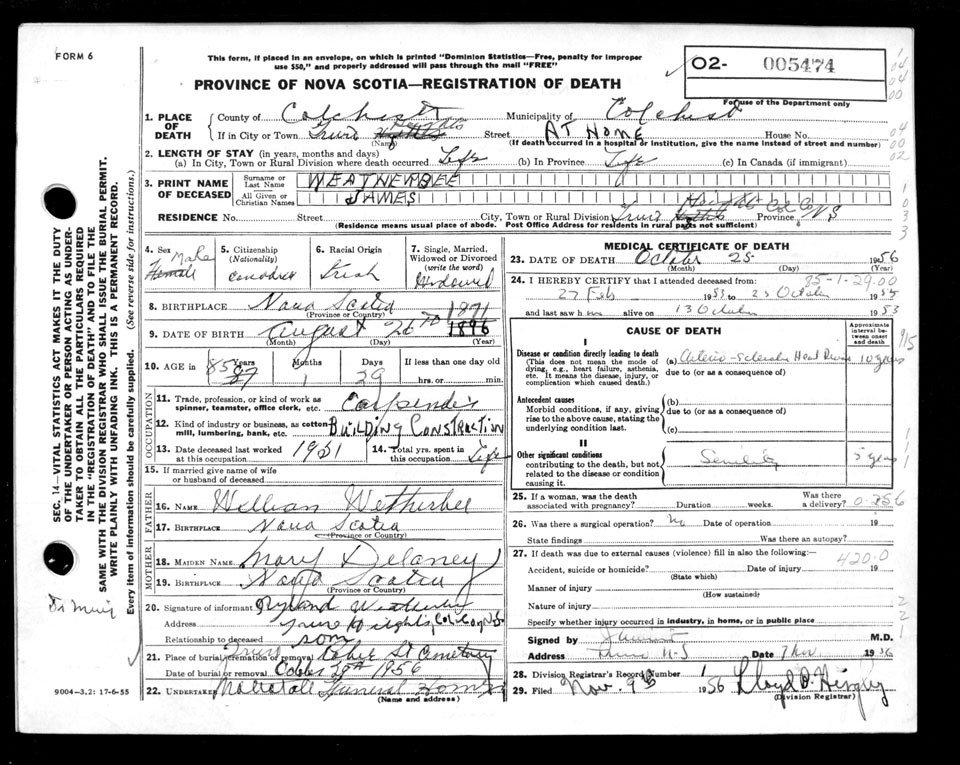 FORM 6
This form, if placed in an envelope, on which is printed "Dominion Statistics—Free, penalty for improper
use $50," and properly addressed will pass through the mail "FREE"
PROVINCE OF NOVA SCOTIA—REGISTRATION OF DEATH
02- 005474
For use of the Department only
1. PLACE OF DEATH
County of Colchester Municipality of Colchester
If in City or Town Truro Heights Street AT HOME House No.
(Name) (If death occurred in a hospital or institution, give the name instead of street and number)
2. LENGTH OF STAY (in years, months and days)
(a) In City, Town or Rural Division where death occurred Life (b) In Province Life (c) In Canada (if immigrant)
3. PRINT NAME OF DECEASED
Surname or Last Name WEATHERBEE
All Given or Christian Names JAMES
RESIDENCE No. Street City, Town or Rural Division Truro Heights Col. Co. Province NS
(Residence means usual place of abode. Post Office Address for residents in rural parts not sufficient)
4. Sex Male Female
5. Citizenship (Nationality)
6. Racial Origin Irish
7. Single, Married, Widowed or Divorced (write the word) Widowed
8. BIRTHPLACE Nova Scotia
(Province or Country)
9. DATE OF BIRTH August 26th 1871 1896
(Month) (Day) (Year)
10. AGE in 85 Years 1 Months 29 Days If less than one day old
hrs. or min.
OCCUPATION
11. Trade, profession, or kind of work as spinner, teamster, office clerk, etc. Carpender
12. Kind of industry or business, as cotton mill, lumbering, bank, etc. BUILDING CONSTRACTION
13. Date deceased last worked at this occupation
14. Total yrs. spent in this occupation Life
15. If married give name of wife or husband of deceased
FATHER
16. NAME William Wetherbee
17. BIRTHPLACE Nova Scotia
(Province or Country)
MOTHER
18. MAIDEN NAME Mary Delaney
19. BIRTHPLACE Nova Scotia
(Province or Country)
20. Signature of informant Weatherbee
Address Truro Heights, Col. Co. N.S.
Relationship to deceased son
21. Place of burial, cremation or removal Truro St Cemetery
Date of burial or removal 1956
22. UNDERTAKER Funeral Home
(Name and Address)
9004—3.2: 17-6-55
MEDICAL CERTIFICATE OF DEATH
23. DATE OF DEATH October 25 1956
(Month) (Day) (Year)
85-1-29.00
24. I HEREBY CERTIFY that I attended deceased from:
27 Feb to October
and last saw h alive on 13 October
CAUSE OF DEATH
Approximate interval between onset and death
I
Disease or condition directly leading to death (a) Arterio-Sclerotic Heart Disease 10 years
(This does not mean the mode of dying, e.g., heart failure, asthenia, etc. It means the disease, injury, or complication which caused death.)
due to (or as a consequence of)
Antecedent causes
Morbid conditions, if any, giving rise to the above cause, stating the underlying condition last.
(b)
due to (or as a consequence of)
(c)
II
Other significant conditions
contributing to the death, but not related to the disease or condition causing it.
Senility 5 years
25. If a woman, was the death associated with pregnancy? Duration weeks. Was there a delivery?
26. Was there a surgical operation? No Date of operation 19
State findings Was there an autopsy?
27. If death was due to external causes (violence) fill in also the following:—
420.0
Accident, suicide or homicide? Date of injury 19
(State which)
Manner of injury
(How sustained)
Nature of injury
Specify whether injury occurred in industry, in home, or in public place
Signed by M.D.
Address Truro N.S. Date 7 Nov 1956
28. Division Registrar's Record Number
29. Filed Nov. 9 1956 Lloyd
(Division Registrar)
SEC. 14—VITAL STATISTICS ACT MAKES IT THE DUTY
OF THE UNDERTAKER OR PERSON ACTING AS UNDER-
TAKER TO OBTAIN ALL THE PARTICULARS REQUIRED
IN THE "REGISTRATION OF DEATH" AND TO FILE THE
SAME WITH THE DIVISION REGISTRAR WHO SHALL ISSUE THE BURIAL PERMIT.
WRITE PLAINLY WITH UNFADING INK. THIS IS A PERMANENT RECORD.
Every item of information should be carefully supplied. (See reverse side for instructions.)
Dr Muir